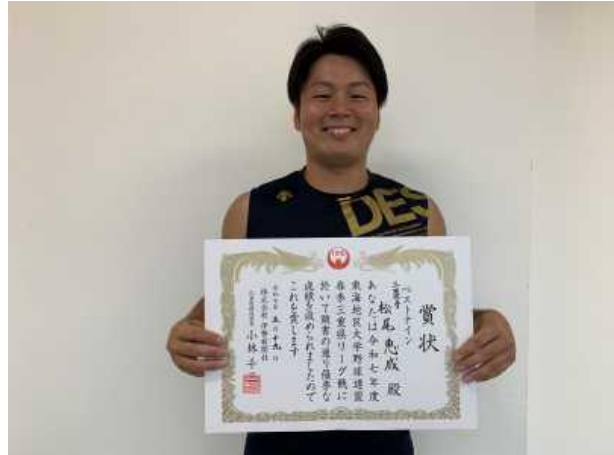 DES
賞状
ベストナイン
三塁手
松尾 恵成 殿
あなたは令和七年度
東海地区大学野球連盟
春季三重県リーグ戦に
於いて頭書の通り優秀な
成績を収められましたので
これを賞します
令和七年 五月十九日